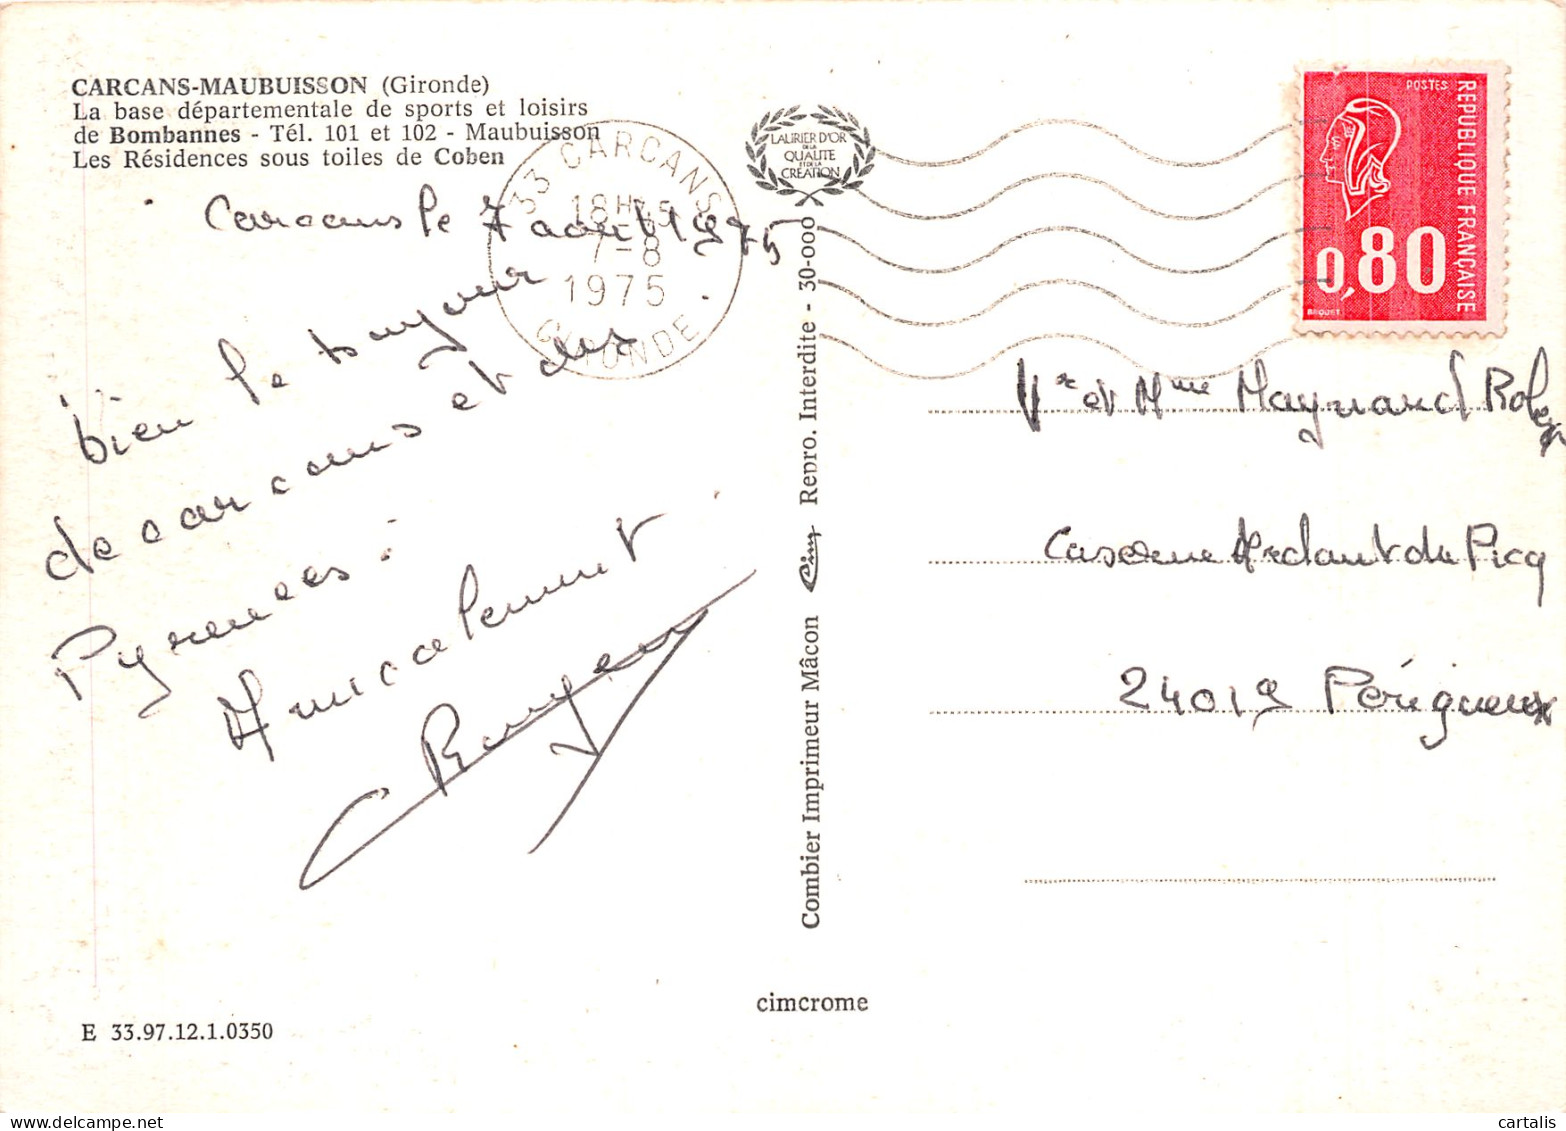 CARCANS-MAUBUISSON (Gironde)
La base départementale de sports et loisirs
de Bombannes - Tél. 101 et 102 - Maubuisson
Les Résidences sous toiles de Coben
Carcans le 7 août 1975
bien le bonjour
de carcans et des
Pyrenees.
Amicalement
33 CARCANS
18H
7-8
1975
GIRONDE
LAURIER D'OR
DE LA
QUALITE
ET DE LA
CREATION
Combier Imprimeur Mâcon Cim Repro. Interdite - 30-000
POSTES
REPUBLIQUE FRANÇAISE
0,80
BEQUET
Mr et Mme Maynard
Caserne Ardant du Picq
24019 Périgueux
cimcrome
E 33.97.12.1.0350
cartalis